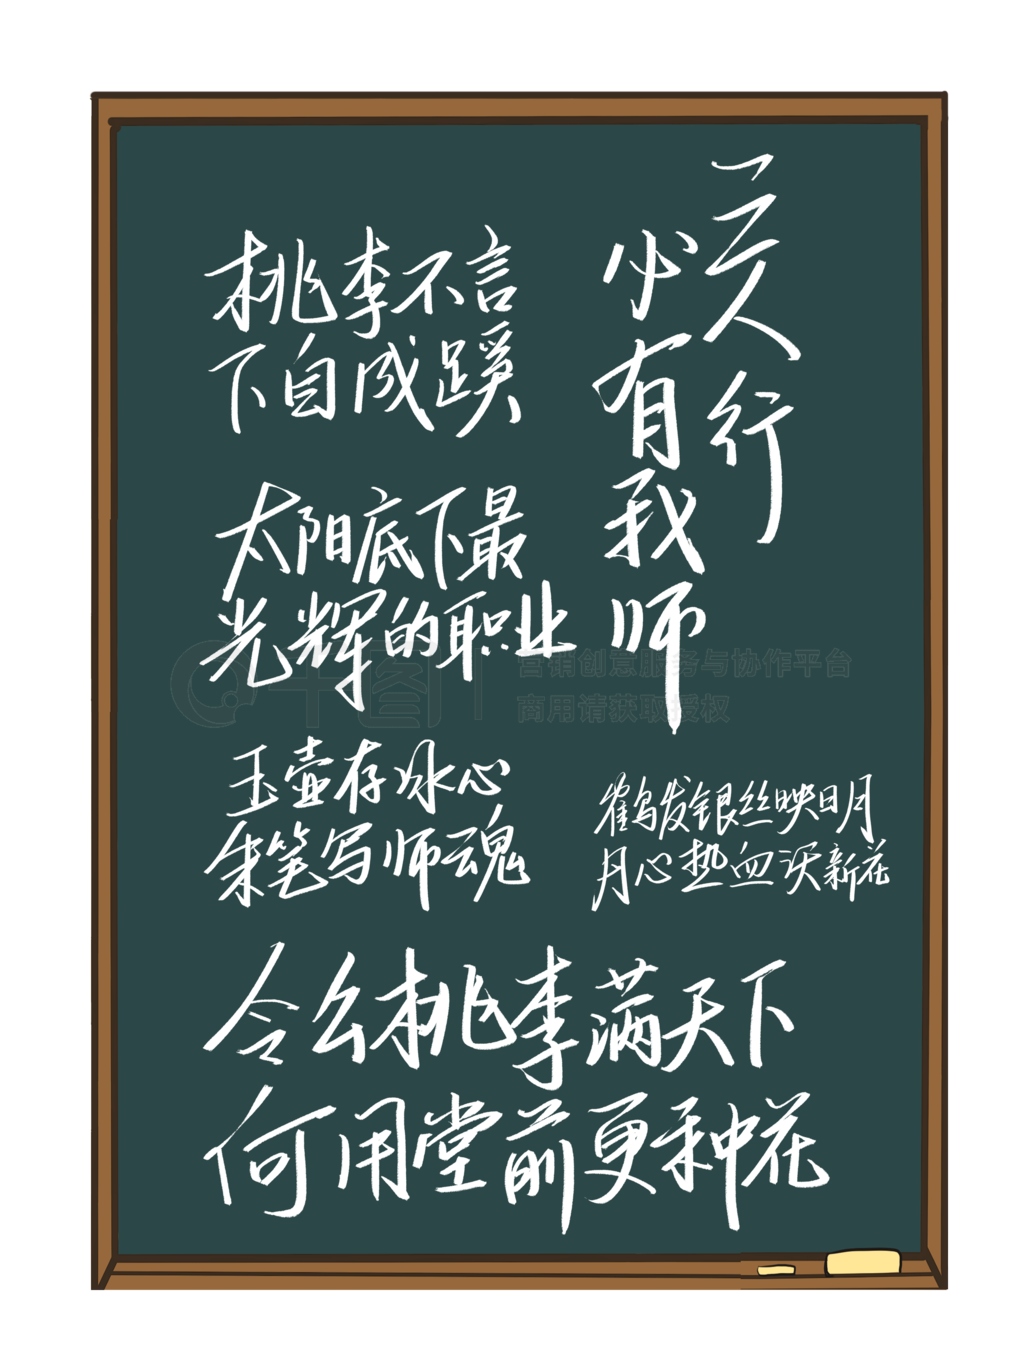 三人行
必有我师
桃李不言
下自成蹊
太阳底下最
光辉的职业
玉壶存冰心
朱笔写师魂
鹤发银丝映日月
丹心热血沃新花
令公桃李满天下
何用堂前更种花
千图
营销创意服务与协作平台
商用请获取授权